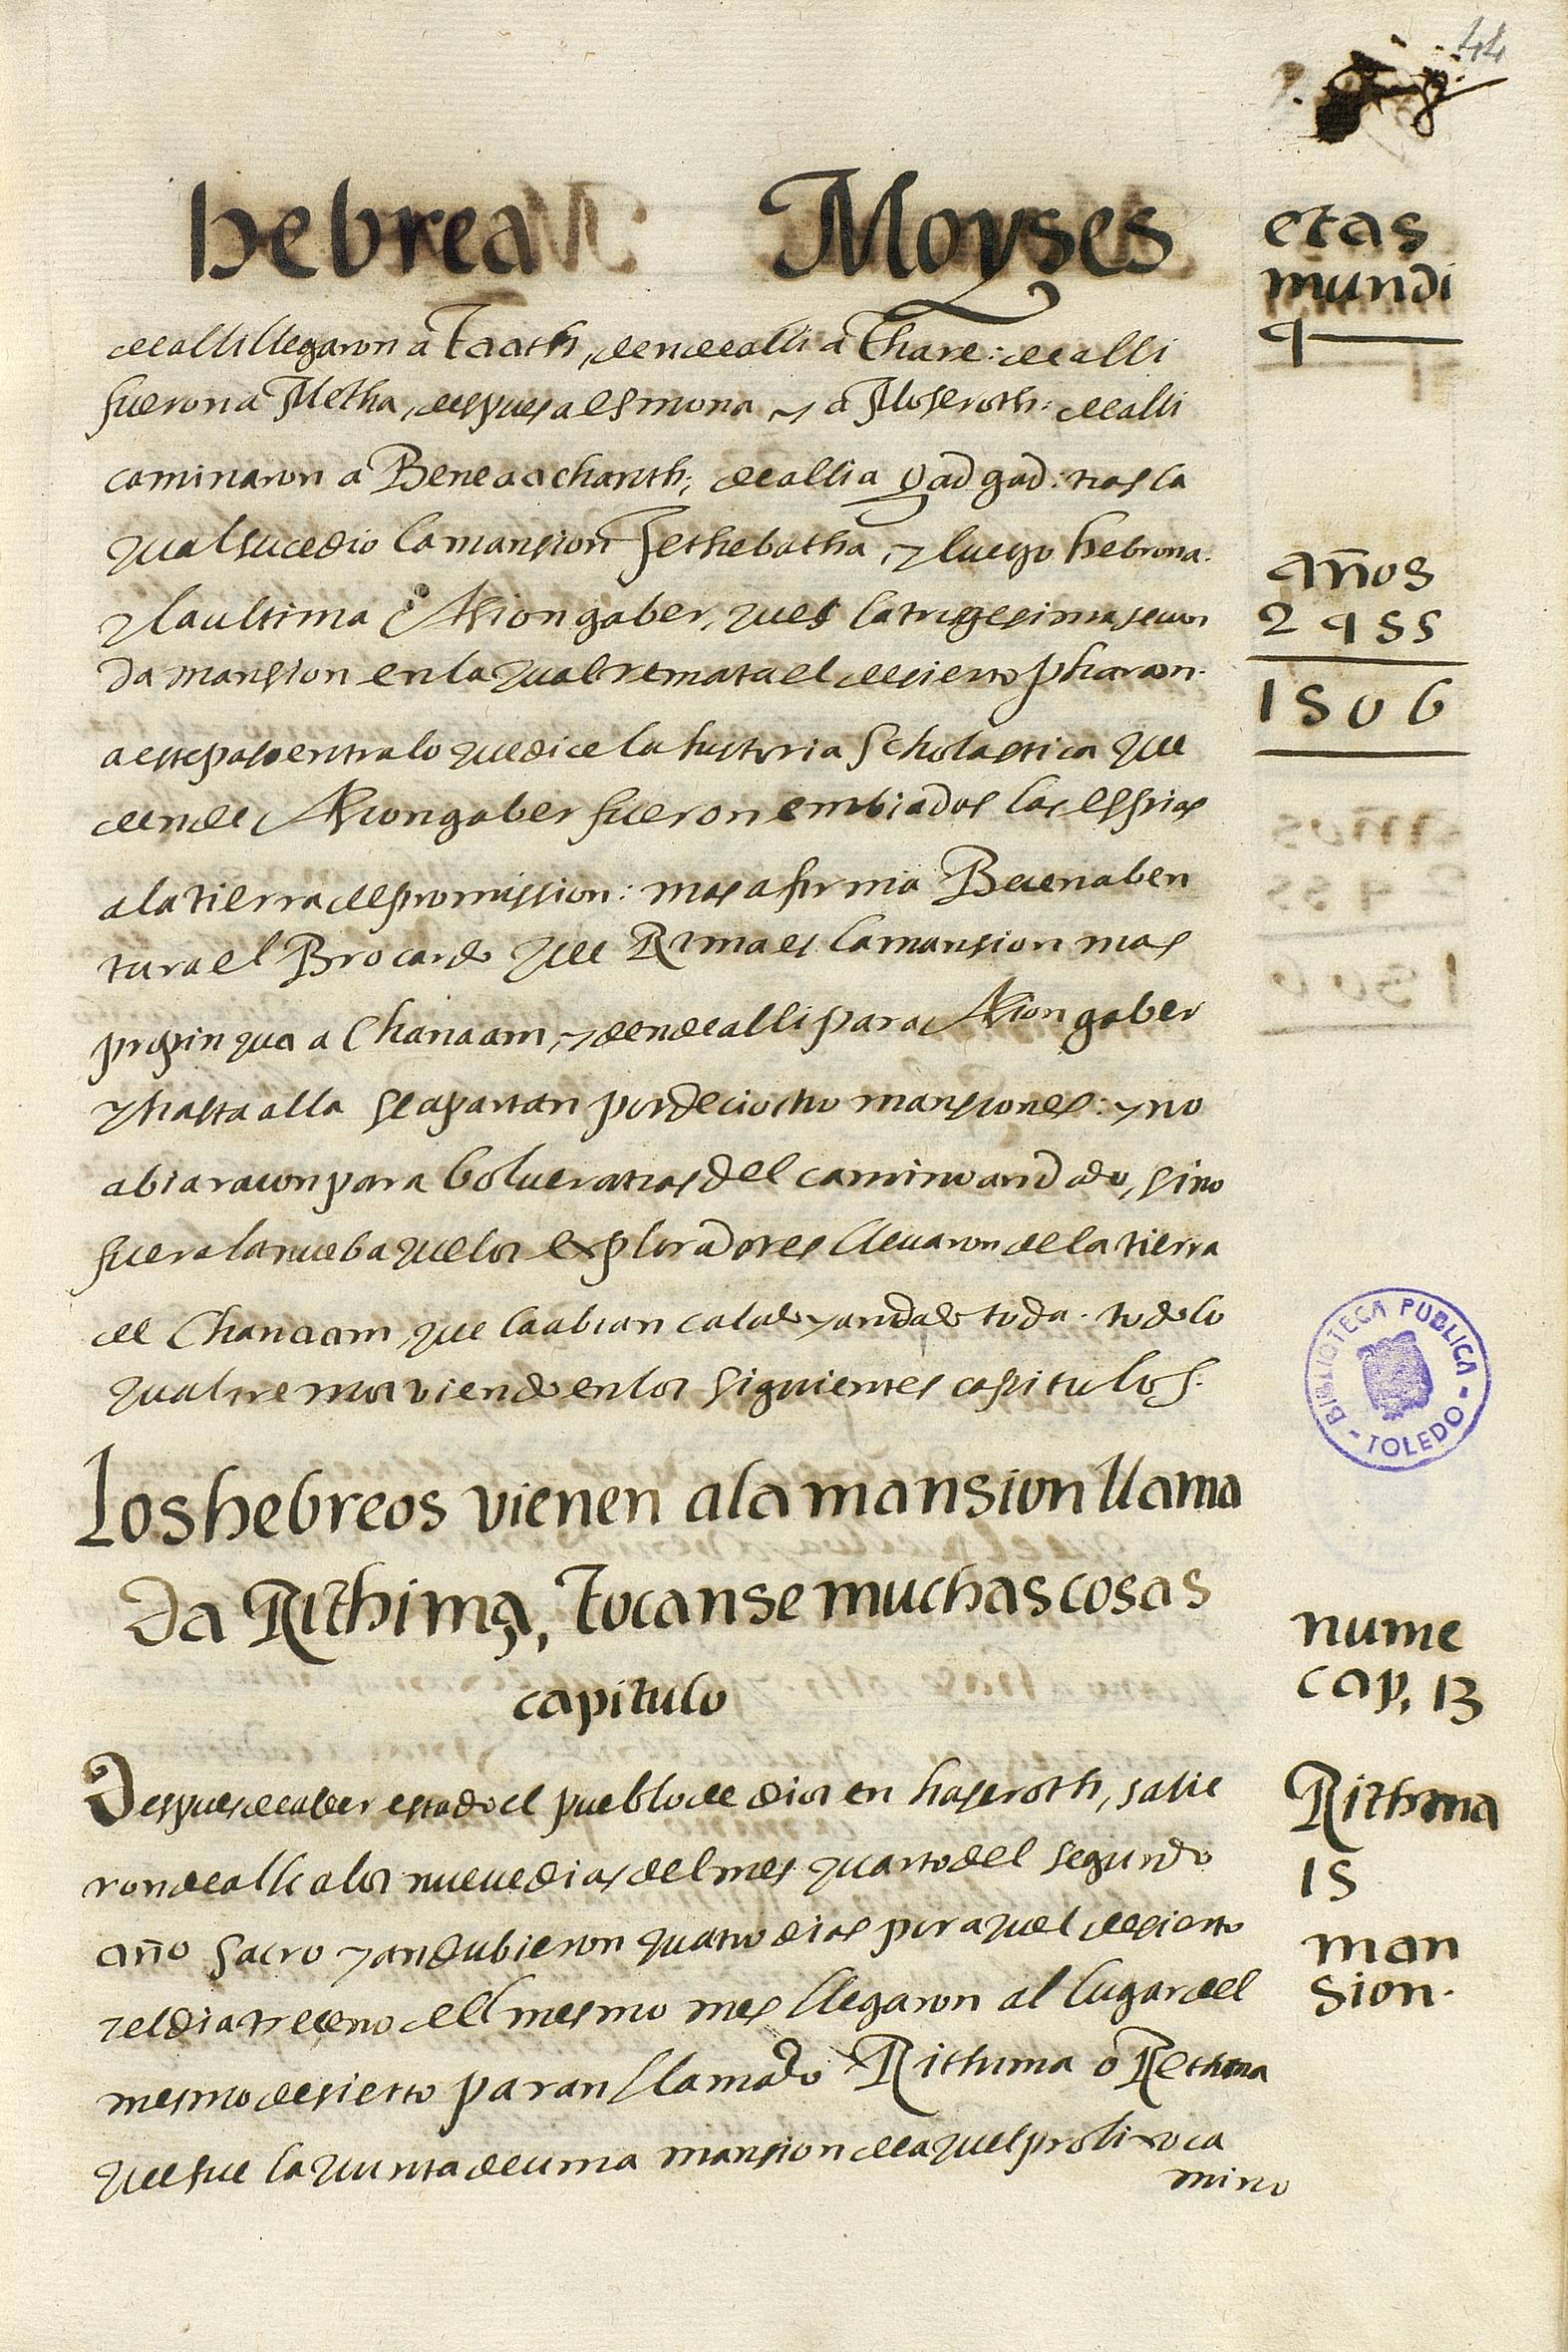 44
hebrea Moyses
etas
mundi
4
de alli llegaron a Taath, dende alli a Thare: de alli
fueron a Metha, despues a Esmona y a Moseroth: de alli
caminaron a Beneaachanth, de alli a gadgad: tras la
qual sucedio la mansion Jethebatha, y luego hebrona.
y la ultima e Asiongaber, que es la trigesima segun
da mansion en la qual remata el desierto pharan.
a este paso entra lo que dice la historia Scholastica que
dende Asiongaber fueron embiados las espias
a la tierra de promission: mas afirma Buenaben
tura el Brocardo que Rima es la mansion mas
propinqua a Chanaam, y dende alli para Asiongaber
y hasta alla se apartan por deciocho mansiones: y no
abia racon para bolver atras del camino andado, sino
fuera la nueba que los exploradores llevaron de la tierra
de Chanaam que la abian calado y andado toda. todo lo
qual iremos viendo en los siguientes capitulos.
años
2455
1506
Los hebreos vienen a la mansion llama
da Rithima, tocanse muchas cosas
capitulo
nume
cap. 13
Despues de aber estado el pueblo de dios en haseroth, salie
ron de alli a los nueve dias del mes quarto del segundo
año sacro y andubieron quatro dias por aquel desierto
y el dia treceno del mesmo mes llegaron al lugar del
mesmo desierto paran llamado Rithma o Rethma
que fue la quinta decima mansion de aquel prolixo ca
mino
Rithma
15
man
sion.
BIBLIOTECA PUBLICA
- TOLEDO -